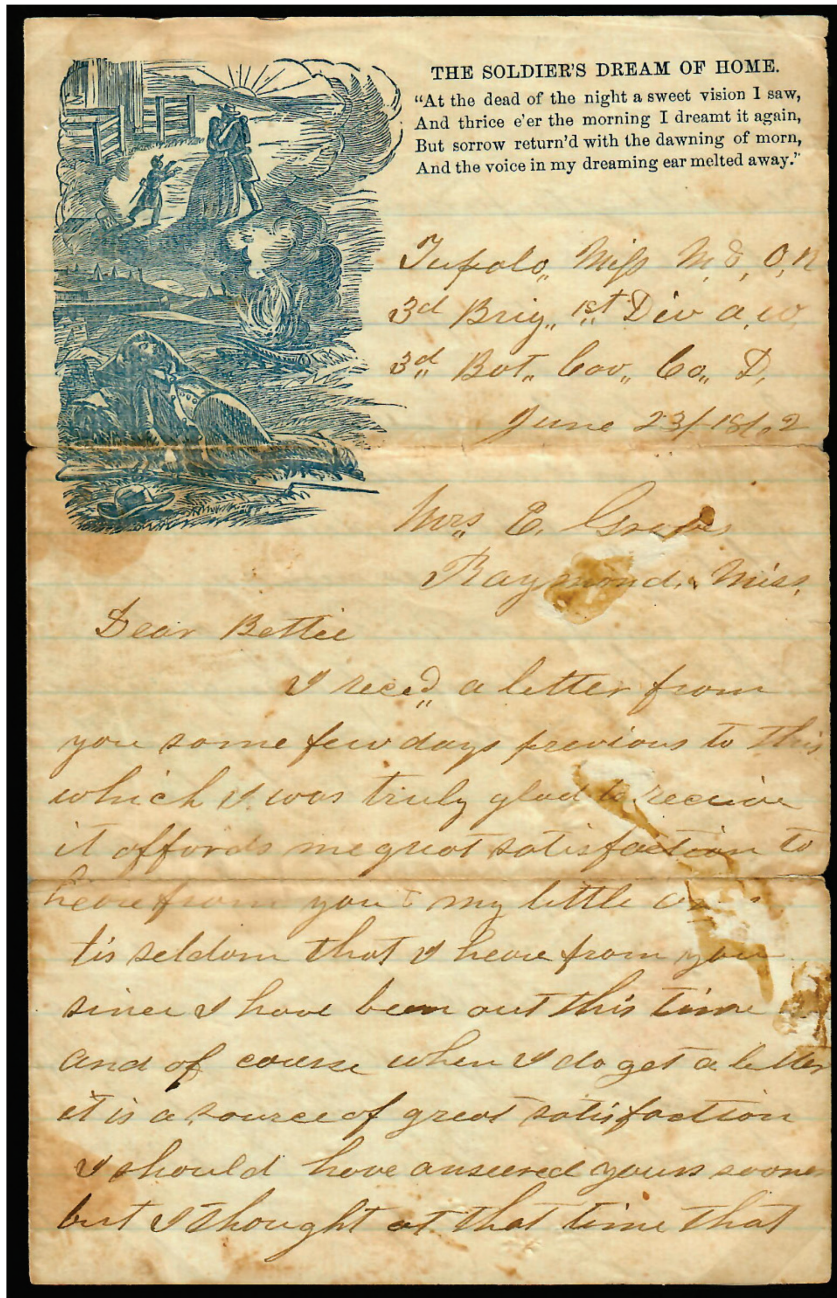 THE SOLDIER'S DREAM OF HOME.
"At the dead of the night a sweet vision I saw,
And thrice e'er the morning I dreamt it again,
But sorrow return'd with the dawning of morn,
And the voice in my dreaming ear melted away."
Tupalo, Miss M, & O, R
3d Brig, 1st Div a, w,
3d Bat, Cav, Co, D,
June 23/1862
Mrs E.
Raymond, Miss,
Dear Bettie
I reced a letter from
you some few days previous to this
which I was truly glad to receive
it affords me great satisfaction to
heare from you & my little
tis seldom that I heare from you
since I have been out this time
and of course when I do get a letter
it is a source of great satisfaction
I should have ansered yours sooner
but I thought at that time that